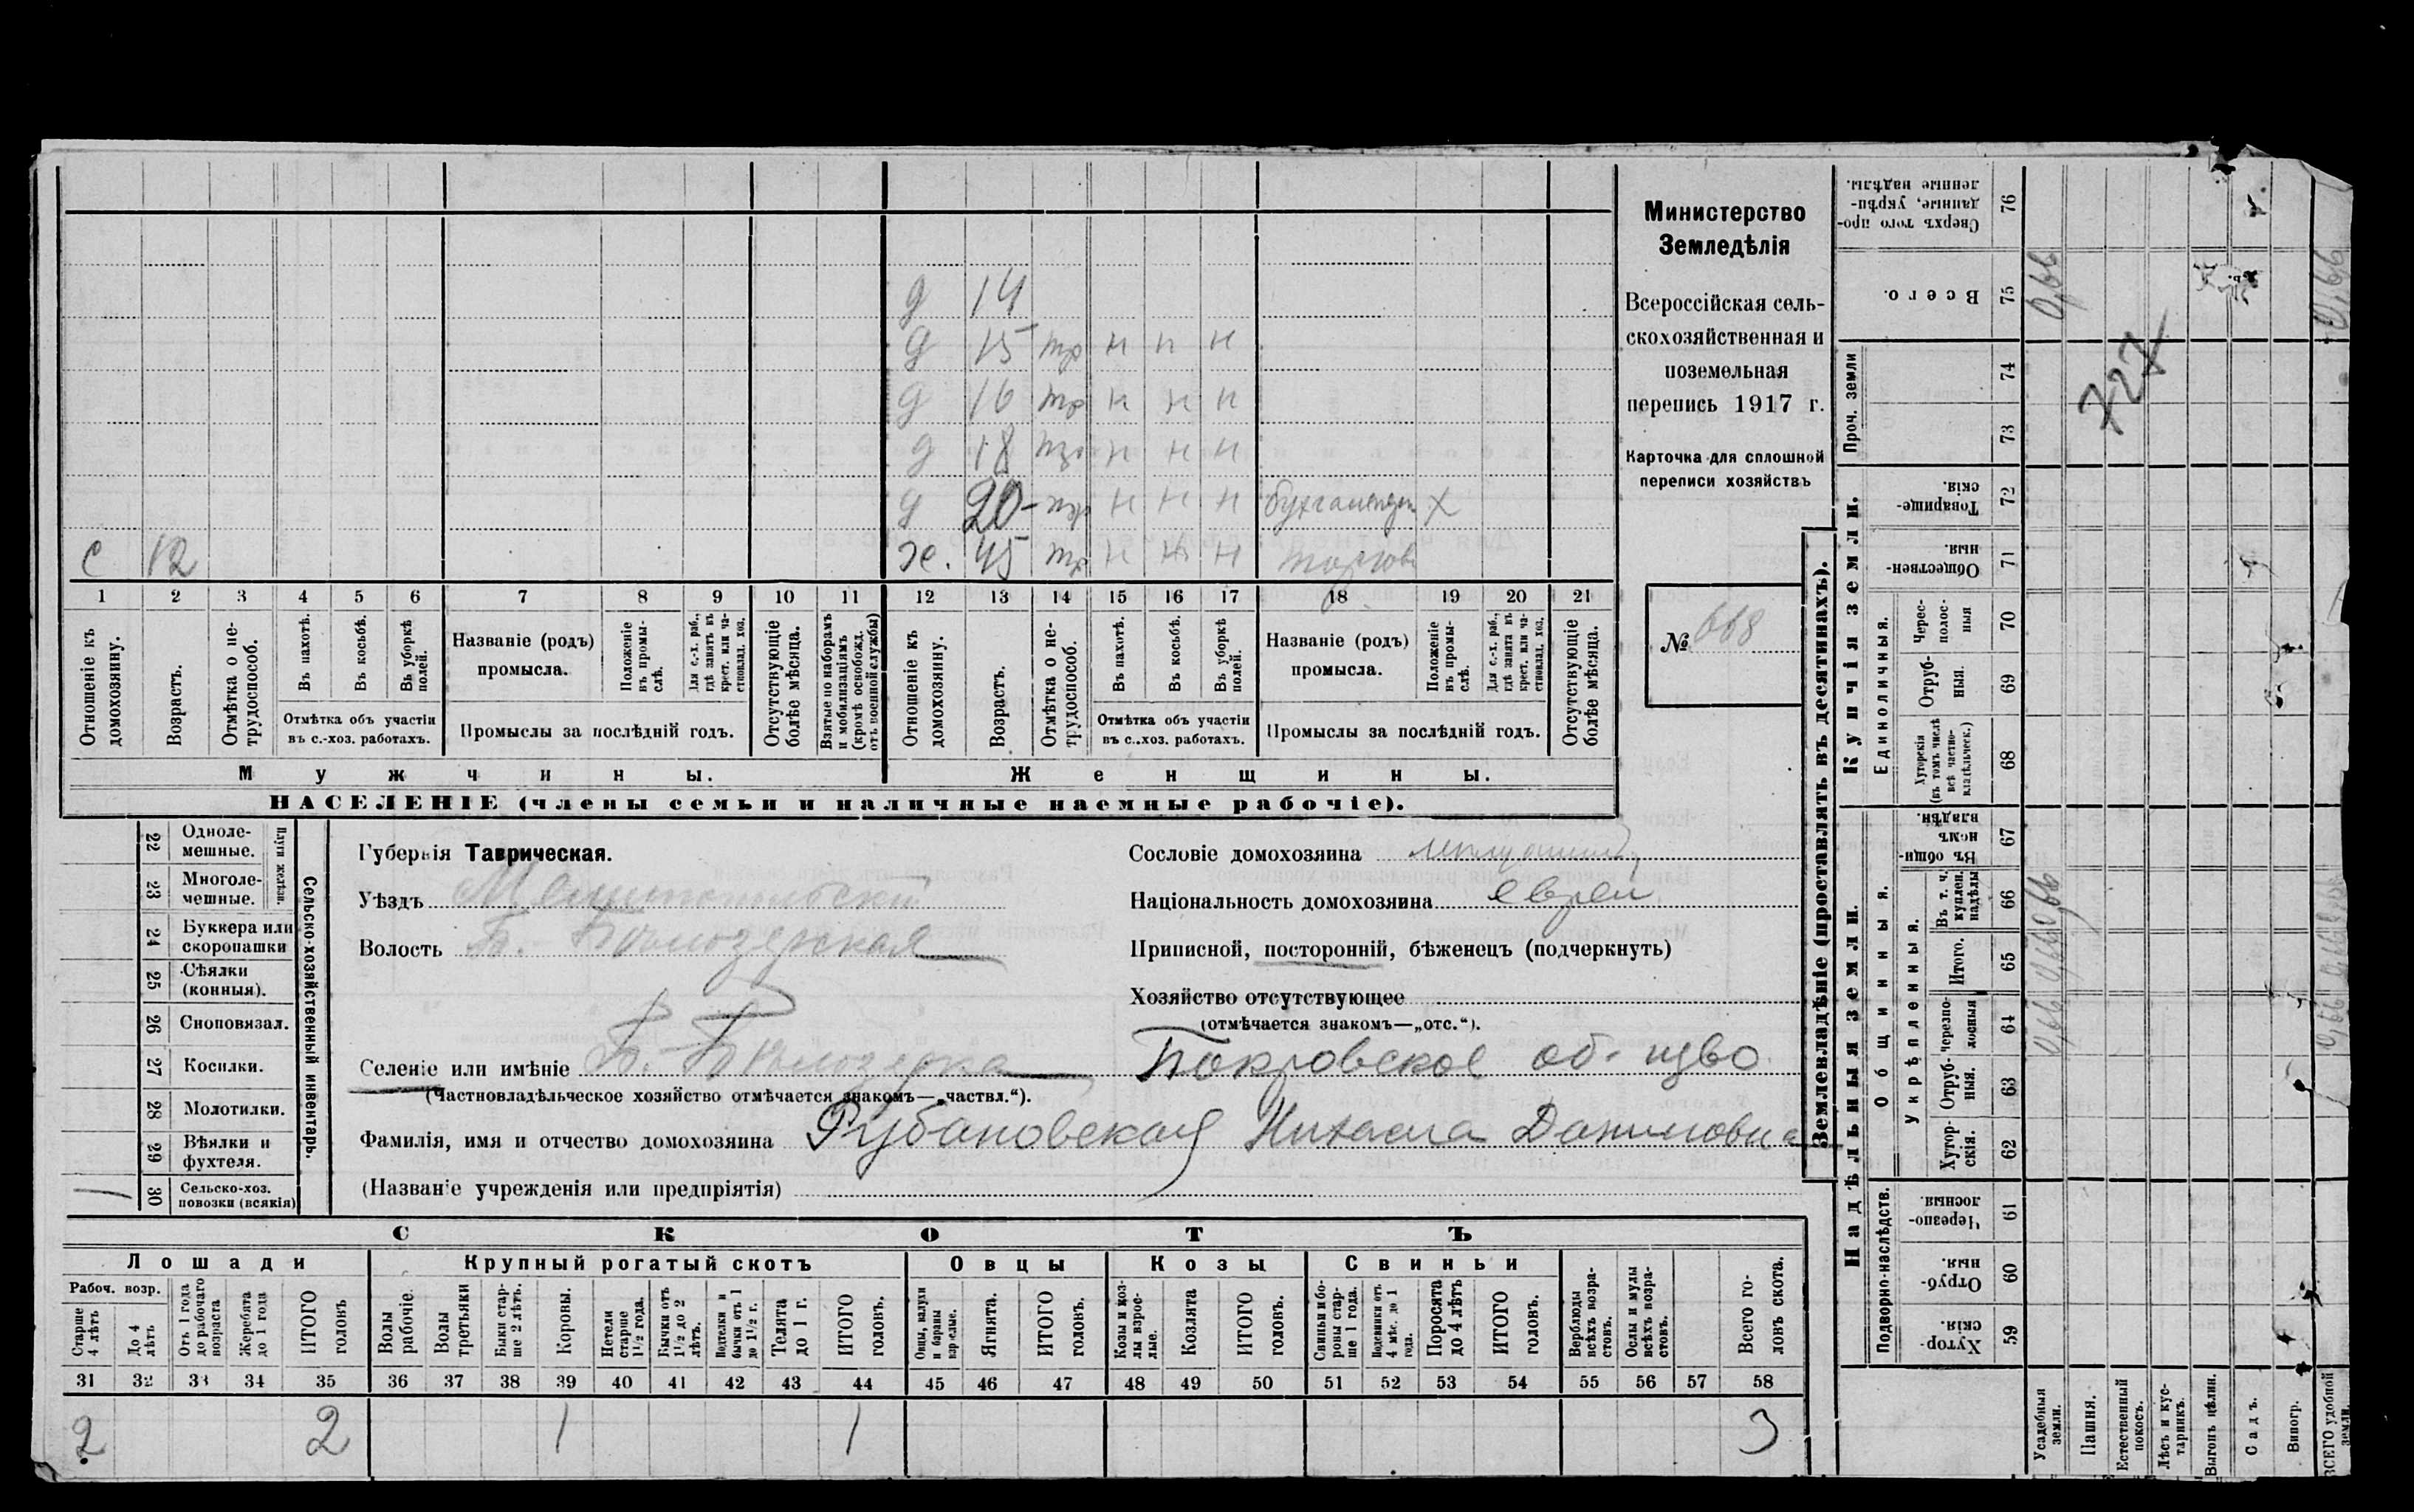 д 14
д 15 тр н н н
д 16 тр н н н
д 18 тр н н н
д 20 - тр н н н бухгалтер Х
с 12 ж. 45 тр н н н торгов
1 2 3 4 5 6 7 8 9 10 11 12 13 14 15 16 17 18 19 20 21
Отношеніе къ домохозяину.
Возрастъ.
Отмѣтка о не-трудоспособ.
Въ пахотѣ.
Въ косьбѣ.
Въ уборкѣ полей.
Отмѣтка объ участіи
въ с.-хоз. работахъ.
Названіе (родъ)
промысла.
Положеніе въ промы-слѣ.
Для с.-х. раб., гдѣ занятъ въ крест. или ча-стновлад. хоз.
Промыслы за послѣдній годъ.
Отсутствующіе болѣе мѣсяца.
Взятые по наборамъ и мобилизаціямъ (кромѣ освобожд. отъ военной службы)
Отношеніе къ домохозяину.
Возрастъ.
Отмѣтка о не-трудоспособ.
Въ пахотѣ.
Въ косьбѣ.
Въ уборкѣ полей.
Отмѣтка объ участіи
въ с.-хоз. работахъ.
Названіе (родъ)
промысла.
Положеніе въ промы-слѣ.
Для с.-х. раб., гдѣ занята въ крест. или ча-стновлад. хоз.
Промыслы за послѣдній годъ.
Отсутствующіе болѣе мѣсяца.
Мужчины. Женщины.
НАСЕЛЕНІЕ (члены семьи и наличные наемные рабочіе).
Министерство
Земледѣлія
Всероссійская сель-
скохозяйственная и
поземельная
перепись 1917 г.
Карточка для сплошной
переписи хозяйствъ
№ 668
Сельско-хозяйственный инвентарь.
Плуги желѣзн.
22 Одноле-мешные.
23 Многоле-мешные.
24 Буккера или скоропашки
25 Сѣялки (конныя).
26 Сноповязал.
27 Косилки.
28 Молотилки.
29 Вѣялки и фухтеля.
30 Сельско-хоз. повозки (всякія) /
Губернія Таврическая.
Уѣздъ Мелитопольскій
Волость Б. Бѣлозерская
Селеніе или имѣніе Б. Бѣлозерка
(Частновладѣльческое хозяйство отмѣчается знакомъ—„частвл.“).
Сословіе домохозяина
Національность домохозяина еврей
Приписной, посторонній, бѣженецъ (подчеркнуть)
Хозяйство отсутствующее
(отмѣчается знакомъ—„отс.“).
Покровское об-щво
Фамилія, имя и отчество домохозяина Рубановская Даниловна
(Названіе учрежденія или предпріятія)
СКОТЪ
Лошади Крупный рогатый скотъ Овцы Козы Свиньи
Рабоч. возр.
Старше 4 лѣтъ
До 4 лѣтъ
Отъ 1 года до рабочаго возраста
Жеребята до 1 года
ИТОГО головъ
Волы рабочіе.
Волы третьяки
Быки стар-ше 2 лѣтъ.
Коровы.
Нетели старше 1½ года.
Бычки отъ 1½ до 2 лѣтъ.
Подтелки и бычки отъ 1 до 1½ г.
Телята до 1 г.
ИТОГО головъ.
Овцы, валухи и бараны взрослые.
Ягнята.
ИТОГО головъ.
Козы и коз-лы взрос-лые.
Козлята
ИТОГО головъ.
Свиньи и бо-ровы стар-ше 1 года.
Подсвинки отъ 4 мѣс. до 1 года.
Поросята до 4 лѣтъ
ИТОГО головъ.
Верблюды всѣхъ возра-стовъ.
Ослы и мулы всѣхъ возра-стовъ.
Всего го-ловъ скота.
31 32 33 34 35 36 37 38 39 40 41 42 43 44 45 46 47 48 49 50 51 52 53 54 55 56 57 58
2 2 1 1 3
Землевладѣніе (проставлять въ десятинахъ).
Надѣльныя земли. Купчія земли. Проч. земли
Подворно-наслѣдств.
Общинныя.
Укрѣпленныя.
Единоличныя.
Хутор-скія. 59
Отруб-ныя. 60
Черезпо-лосныя 61
Хутор-скія. 62
Отруб-ныя. 63
Черезпо-лосныя 64 0,66
Итого. 65 0,66
Въ т. ч. куплен. надѣлы 66 0,66
Въ общи-номъ владѣн. 67
Хуторскія (въ томъ числѣ всѣ частно-владѣльческ.) 68
Отруб-ныя. 69
Черес-полос-ныя 70
Обществен-ныя. 71
Товарище-скія. 72
73
74
Всего. 75 0,66
Сверхъ того про-данные, укрѣп-ленные надѣлы. 76
727
Усадебныя земли.
Пашня.
Естественный покосъ.
Лѣсъ и кус-тарникъ.
Выгонъ цѣлин.
Садъ.
Виногр.
ВСЕГО удобной земли.
0,66
0,66